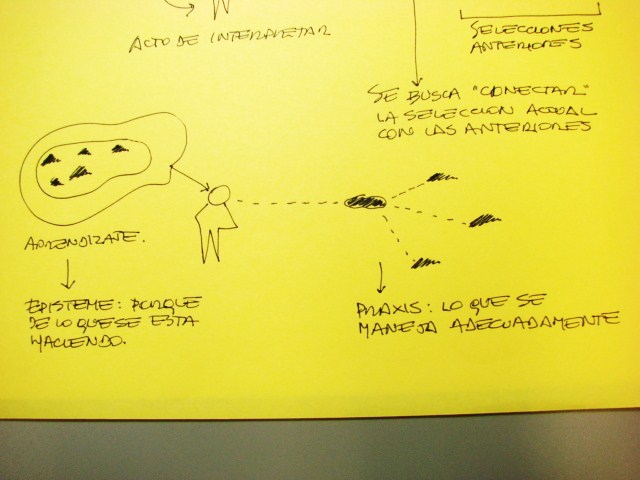 ACTO DE INTERPRETAR
SELECCIONES
ANTERIORES
SE BUSCA "CONECTAR"
LA SELECCION ACTUAL
CON LAS ANTERIORES
APRENDIZAJE.
EPISTEME: PORQUE
DE LO QUE SE ESTA
HACIENDO.
PRAXIS: LO QUE SE
MANEJA ADECUADAMENTE